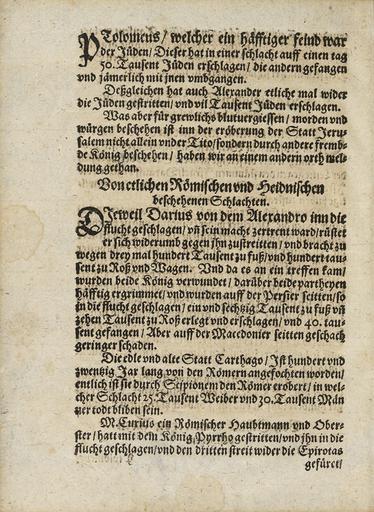 PTolomeus/ welcher ein häfftiger feind war
der Jüden/ Dieser hat in einer schlacht auff einen tag
30. Tausent Jüden erschlagen/ die andern gefangen
vnd jämerlich mit jnen vmbgangen.
Deßgleichen hat auch Alexander etliche mal wider
die Jüden gestritten/ vnd vil Tausent Jüden erschlagen.
Was aber für grewlichs blutuergiessen/ morden vnd
würgen beschehen ist inn der eröberung der Statt Jeru-
salem nicht allein vnder Tito/ sondern durch andere fremb-
de König beschehen/ haben wir an einem andern orth mel-
dung gethan.
Von etlichen Römischen vnd Heidnischen
beschehenen Schlachten.
DJeweil Darius von dem Alexandro inn die
flucht geschlagen/ vñ sein macht zertrent ward/ rüstet
er sich widerumb gegen jhn zustreitten/ vnd bracht zu
wegen drey mal hundert Tausent zu fuß/ vnd hundert tau-
sent zu Roß vnd Wagen. Vnd da es an ein treffen kam/
wurden beide König verwundet/ darüber beide partheyen
häfftig ergrimmet/ vnd wurden auff der Persier seitten/ so
in die flucht geschlagen/ ein vnd sechtzig Tausent zu fuß vñ
zehen Tausent zu Roß erlegt vnd erschlagen/ vnd 40. tau-
sent gefangen/ Aber auff der Macedonier seitten geschach
geringer schaden.
Die edle vnd alte Statt Carthago/ Jst hundert vnd
zwentzig Jar lang von den Römern angefochten worden/
entlich ist sie durch Scipionem den Römer eröbert/ in wel-
cher Schlacht 25. Tausent Weiber vnd 30. Tausent Män
ner todt bliben sein.
M. Curius ein Römischer Haubtmann vnd Ober-
ster/ hatt mit dem König Pyrrho gestritten/ vnd jhn in die
flucht geschlagen/ vnd den dritten streit wider die Epirotas
gefüret/